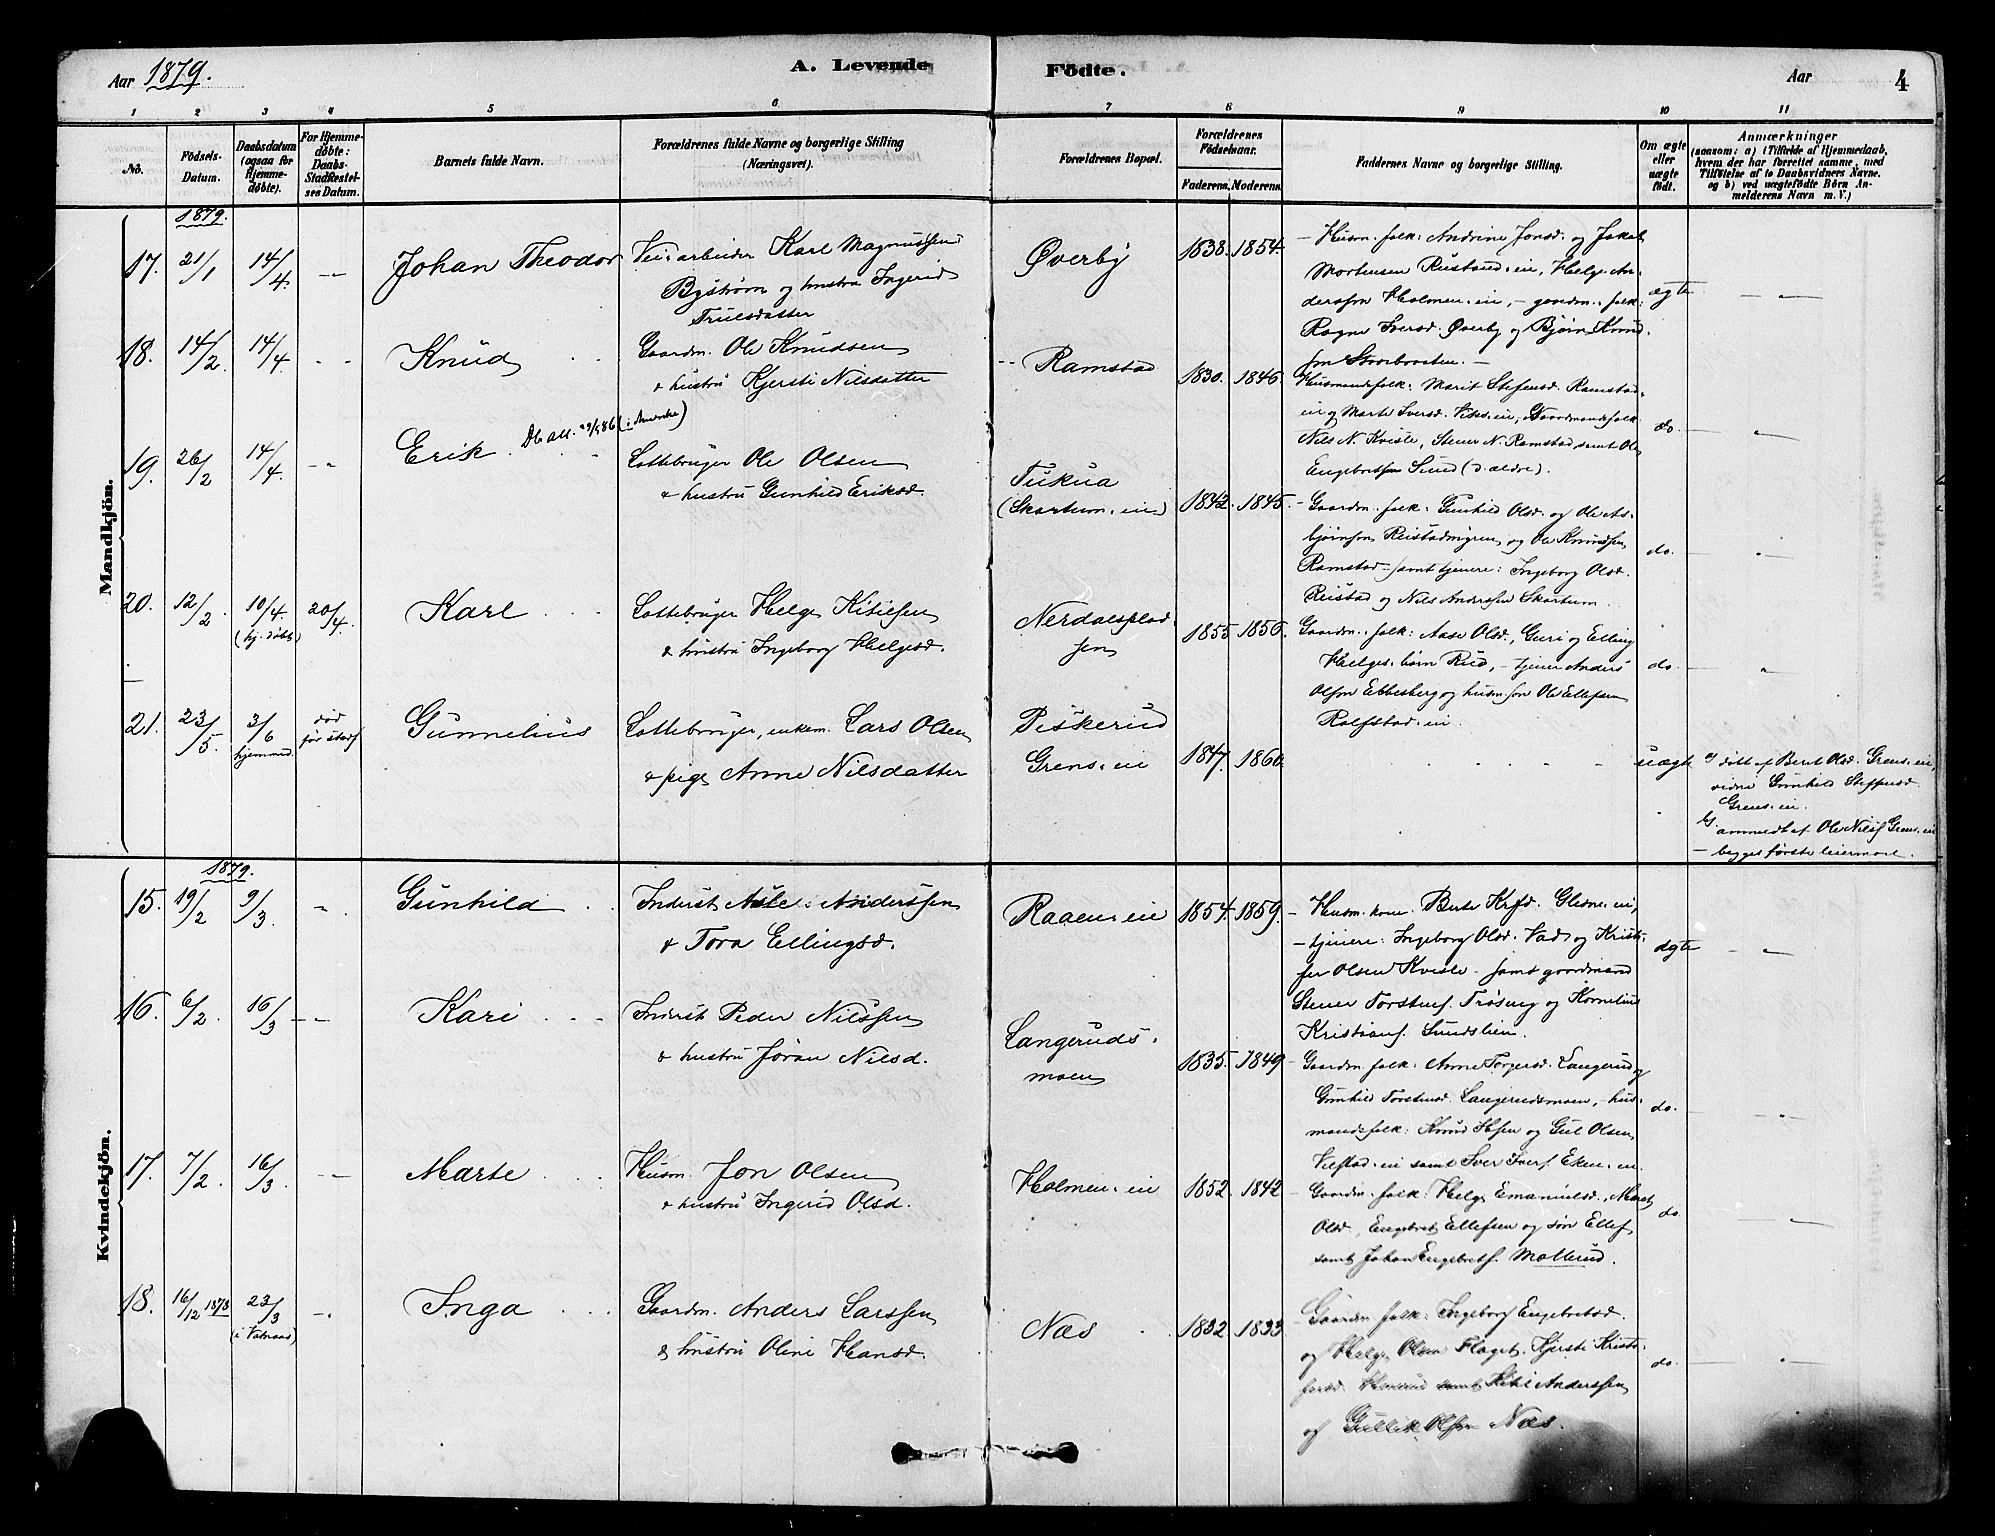 Aar 1879.
A. Levende
Födte.
Aar
4
1 2 3 4 5 6 7 8 9 10 11
No.
Födsels-Datum.
Daabsdatum (ogsaa for Hjemmedøbte).
For Hjemmedøbte: Daabs-Stadfæstelses Datum.
Barnets fulde Navn.
Forældrenes fulde Navne og borgerlige Stilling (Næringsvei).
Forældrenes Bopæl.
Forældrenes Fødselsaar.
Faderens. Moderens.
Faddernes Navne og borgerlige Stilling.
Om ægte eller uægte födt.
Anmærkninger
(saasom: a) i Tilfælde af Hjemmedaab,
hvem der har forrettet samme, med
Tilföielse af to Daabsvidners Navne.
og b) ved uægtefödte Börn An-
melderens Navn m. V.)
Mandkjön.
1879.
17. 21/1 14/4 -"- Johan Theodor
Veiarbeider Karl Magnussen
Byström og hustru Ingerid
Trulsdatter
Øverby 1838. 1854.
- Husm. folk: Andrine Jonsd. og Jakob
Mortensen Rustad.ei, Helge An-
derssøn Holmen.ei, - gaardm. folk:
Ragne Iversd. Øverby og Bjørn Knud
ægte - " -
18. 14/2 14/4 - - Knud
Gaardm. Ole Knudsen
& hustru Kjersti Nilsdatter
Ramstad 1830. 1846.
Husmandsfolk: Marit Stefensd. Ramstad-
ei og Marte Iversd. Viks.ei, Gaardmandsfolk
Nils N. Kvisle, Stener N. Ramstad samt Ole
Engebretsen Sund (d. ældre).
do. - " -
19. 26/2 14/4 -"- Erik.
Db att. 29/5 86 (i Amerika)
Lottebruger Ole Olsen
& hustru Gunhild Eriksd.
Tukua
(Skartum.ei) 1842. 1845.
- Gaardm. folk: Gunhild Olsd. og Ole As-
bjørnsen Reistadmyren og Ole Knudsen
Ramstad - samt tjenere: Ingeborg Olsd.
Reistad og Nils Anderssen Skartum.
do. - " -
20. 12/2 10/4 (hj. døbt) 20/4. Karl
Lottebruger Helge Kitilsen
& hustru Ingeborg Helgesd.
Nerdalsplad-
sen 1855 1856.
Gaardm. folk: Aase Olsd., Guri og Elling
Helges. børn Rud, - tjener Anders
Olsen Ebbesberg og husm. søn Ole Ellefsen
Rolfstad.ei.
do. - " -
21. 23/5. 3/6 hjemmed. død før stadf
Gunnelius
Lottebruger, enkem. Lars Olsen
& pige Anne Nilsdatter
Piskerud
Grens.ei 1847. 1860.
uægte
a) døbt af Berit Olsd. Grens.ei,
vidne Gunhild Steffensd.
Grens.ei.
b) anmeldt af Ole Nilsf. Grens.ei
- begges første leiermaal.
Kvindekjön.
1879.
15. 19/2 9/3 " Gunhild
Inderst Asle Anderssen
& Tora Ellingsd.
Raaen.ei 1854. 1859.
- Husm. kone Berte Krfd. Glesne.ei,
- tjenere: Ingeborg Olsd. Vad og Kristo-
fer Olsen Kvisle - samt gaardmænd
Stener Torstens. Trøseng og Kornelius
Kristians. Sundslien.
ægte - " -
16. 6/2. 16/3 -- Kari
Inderst Peder Nilssen
& hustru Jøran Nilsd.
Langeruds-
moen 1835. 1849
- Gaardm. folk: Anne Torgersd. Langerud og
Gunhild Torstensd. Langerudsmoen, hus-
mandsfolk: Knud Hsen og Gul Olsen
Vilstad.ei samt Iver Ivers. Eken.ei
do. - " -
17. 7/2. 16/3 -- Marte
Husm. Jon Olsen
& hustru Ingrid Olsd.
Holmen.ei 1852. 1842
- Gaardm. folk: Helge Emanuelsd., Marit
Olsd., Engebret Ellefsen og søn Ellef
samt Johan Engebrets. Møllerud.
do. "
18. 16/12 1878 23/3 (i Vatnaas) -"- Inga
Gaardm. Anders Larssen
& hustru Oline Hansd.
Næs 1832. 1833
- Gaardm. folk: Ingeborg Engebretsd.
og Helge Olsen Flaget, Kjersti Kristo-
fersd. samt Kitil Anderssen
og Gullik Olsen Næs.
do. "